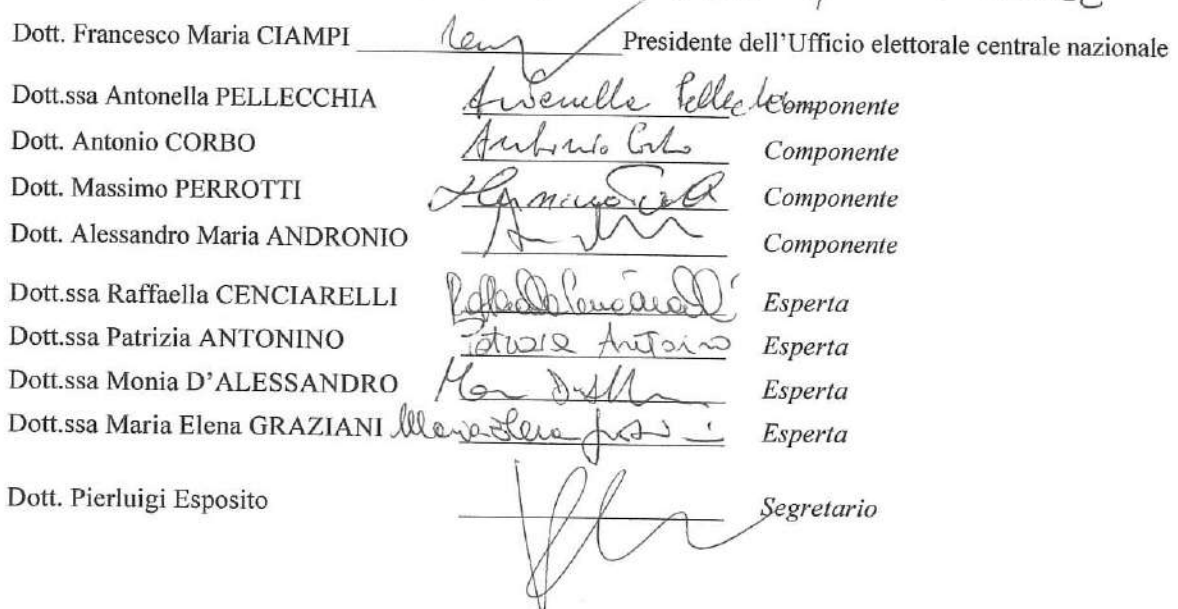 Dott. Francesco Maria CIAMPI Presidente dell'Ufficio elettorale centrale nazionale
Dott.ssa Antonella PELLECCHIA Antonella Pellecchia Componente
Dott. Antonio CORBO Antonio Corbo Componente
Dott. Massimo PERROTTI Componente
Dott. Alessandro Maria ANDRONIO Componente
Dott.ssa Raffaella CENCIARELLI Raffaella Cenciarelli Esperta
Dott.ssa Patrizia ANTONINO Patrizia Antonino Esperta
Dott.ssa Monia D'ALESSANDRO Esperta
Dott.ssa Maria Elena GRAZIANI Maria Elena Esperta
Dott. Pierluigi Esposito Segretario